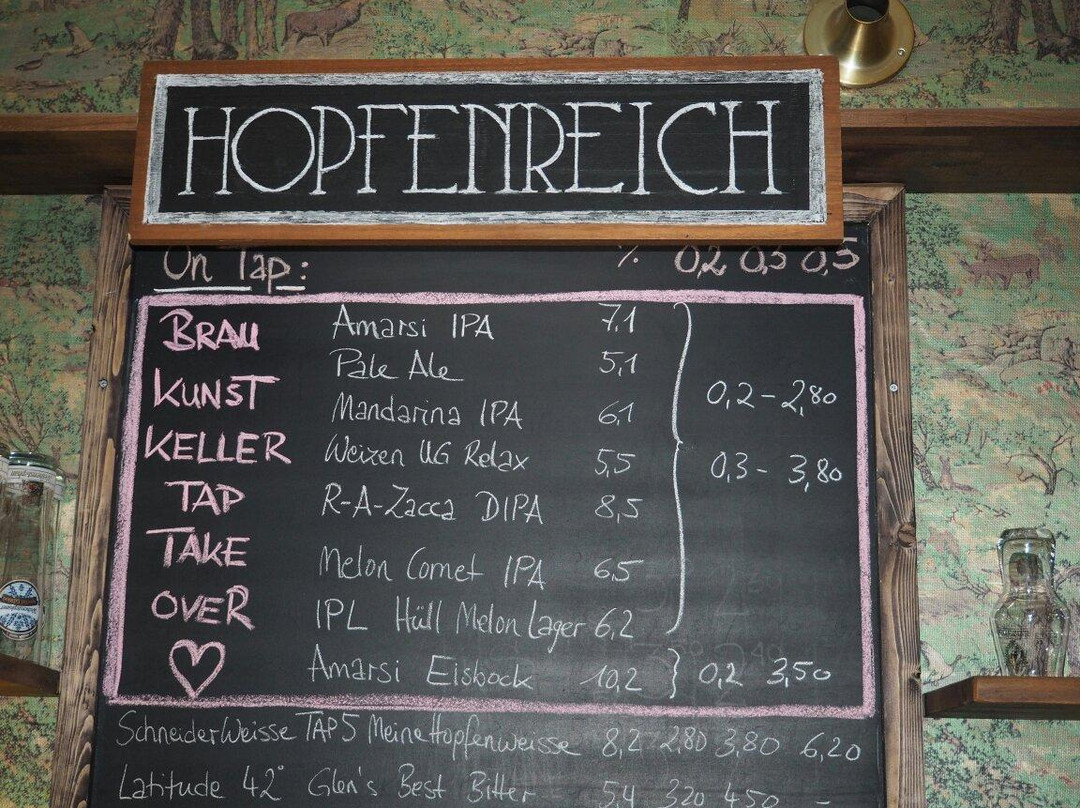 HOPFENREICH
On Tap: % 0,2 0,3 0,5
BRAU KUNST KELLER TAP TAKE OVER
Amarsi IPA 7,1
Pale Ale 5,1
Mandarina IPA 6,1
Weizen UG Relax 5,5
R-A-Zacca DIPA 8,5
Melon Comet IPA 6,5
IPL Hüll Melon Lager 6,2
0,2 - 2,80
0,3 - 3,80
Amarsi Eisbock 10,2 0,2 3,50
Schneider Weisse TAP5 Meine Hopfenweisse 8,2 2,80 3,80 6,20
Latitude 42° Glen's Best Bitter 5,4 3,20 4,50 -